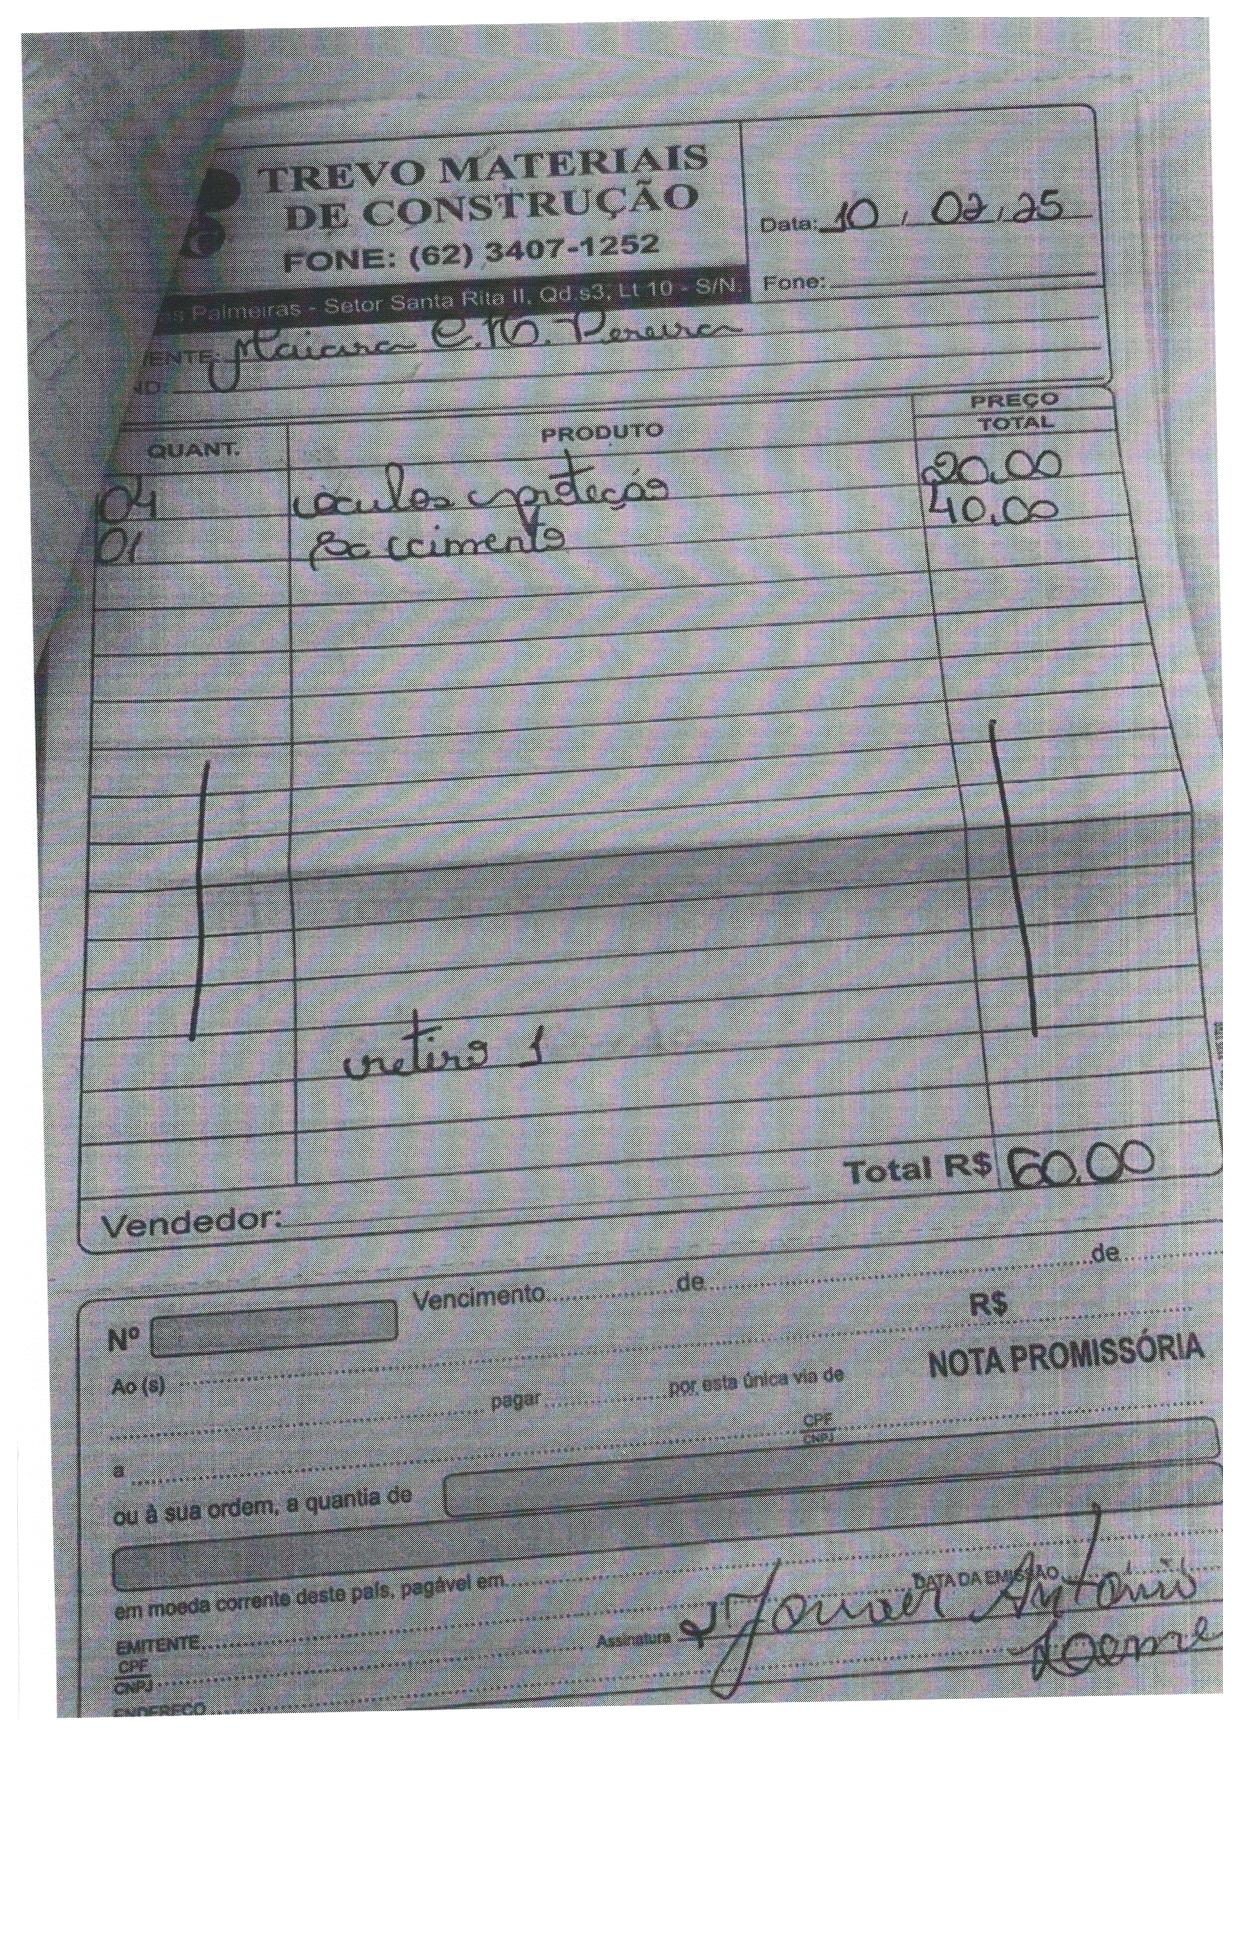 TREVO MATERIAIS
DE CONSTRUÇÃO
FONE: (62) 3407-1252
s Palmeiras - Setor Santa Rita II, Qd.s3, Lt 10 - S/N.
Data: 10, 02, 25
Fone:
ENTE: Maiara C. M. Pereira
ND.
QUANT. PRODUTO PREÇO TOTAL
04 oculos proteção 20,00
01 Sc cimento 40,00
retiro 1
Total R$ 60,00
Vendedor:
Nº Vencimento de de
R$
Ao (s) NOTA PROMISSÓRIA
pagar por esta única via de
a CPF CNPJ
ou à sua ordem, a quantia de
em moeda corrente deste país, pagável em
DATA DA EMISSÃO
EMITENTE
Assinatura Antônio
CPF
CNPJ
ENDEREÇO